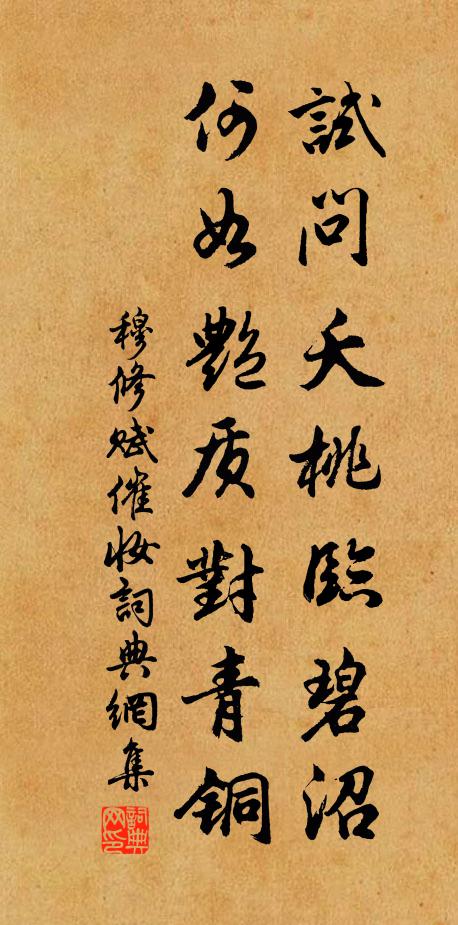 試問夭桃臨碧沼
何如艷质對青铜
穆修賦催妝詞典網集
詞典网印